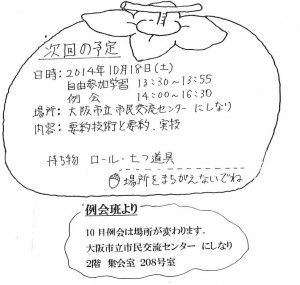 次回の予定
日時:2014年10月18日(土)
自由参加学習 13:30~13:55
例会 14:00~16:30
場所:大阪市立市民交流センター にしなり
内容:要約技術と要約、実技
持ち物 ロール・七つ道具
場所をまちがえないでね
例会班より
10月例会は場所が変わります。
大阪市立市民交流センター にしなり
2階 集会室 208号室